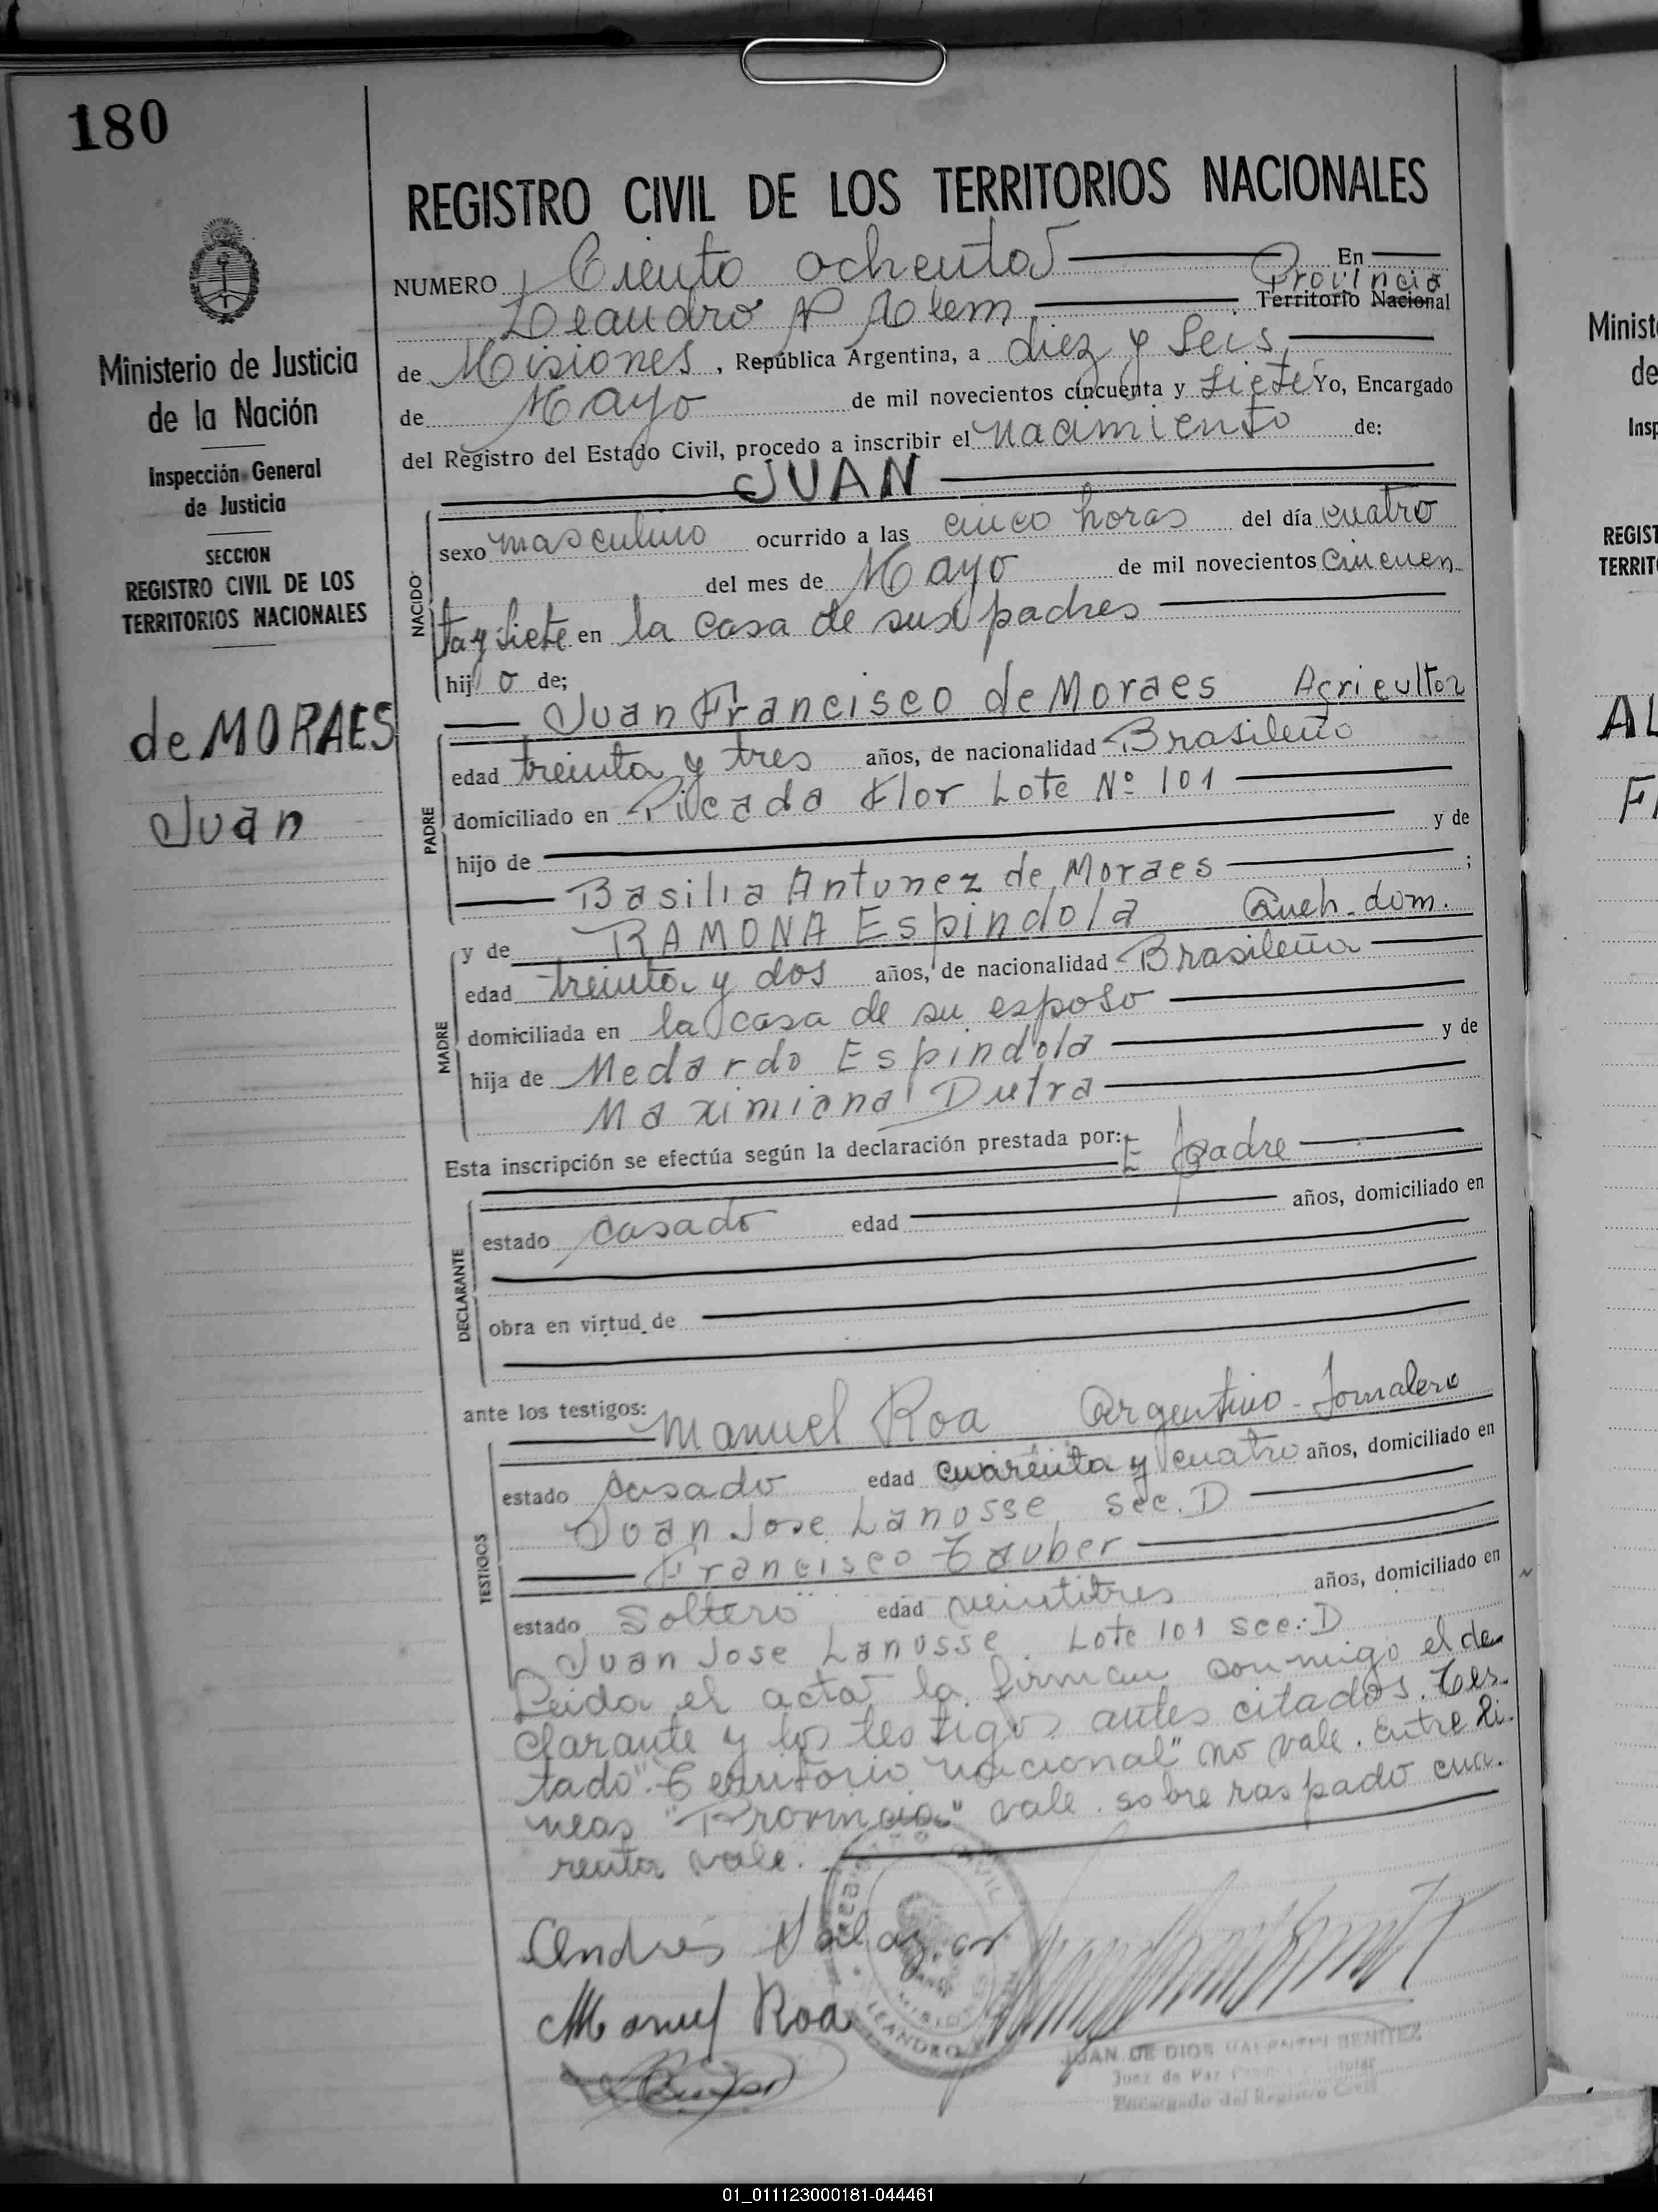 180
REGISTRO CIVIL DE LOS TERRITORIOS NACIONALES
NUMERO Ciento ochenta En
Provincia
Leandro N Alem Territorio Nacional
de Misiones, República Argentina, a diez y seis,
de Mayo de mil novecientos cincuenta y siete Yo, Encargado
del Registro del Estado Civil, procedo a inscribir el nacimiento de:
JUAN
NACIDO
sexo masculino ocurrido a las cinco horas del día cuatro
del mes de Mayo de mil novecientos cincuen
ta y siete en la casa de sus padres
hijo de;
Juan Francisco de Moraes Agricultor
PADRE
edad treinta y tres años, de nacionalidad Brasileño
domiciliado en Picada Flor Lote Nº 101
hijo de y de
Basilia Antunez de Moraes ;
y de RAMONA Espindola Queh. dom.
MADRE
edad treinta y dos años, de nacionalidad Brasileña
domiciliada en la casa de su esposo
hija de Medardo Espindola y de
Maximiana Dutra
Esta inscripción se efectúa según la declaración prestada por: E padre
DECLARANTE
estado casado edad años, domiciliado en
obra en virtud de
ante los testigos: Manuel Roa Argentino - Jornalero
TESTIGOS
estado casado edad cuarenta y cuatro años, domiciliado en
Juan Jose Lanusse Sec. D
Francisco Tauber
estado soltero edad veintitres años, domiciliado en
Juan Jose Lanusse Lote 101 Sec: D
Leida el acta la firman conmigo el de
clarante y los testigos antes citados. Tes-
tado "Territorio nacional" no vale. Entre li-
neas "Provincia" vale. sobre raspado cua-
renta vale.
Andrés
Manuel Roa
REGISTRO CIVIL
MISIONES
LEANDRO N
JUAN DE DIOS VALENTIN BENITEZ
Juez de Paz Titular
Encargado del Registro Civil
Ministerio de Justicia
de la Nación
Inspección General
de Justicia
SECCION
REGISTRO CIVIL DE LOS
TERRITORIOS NACIONALES
de MORAES
Juan
Minist
de
Insp
REGIST
TERRIT
AL
F
01_011123000181-044461